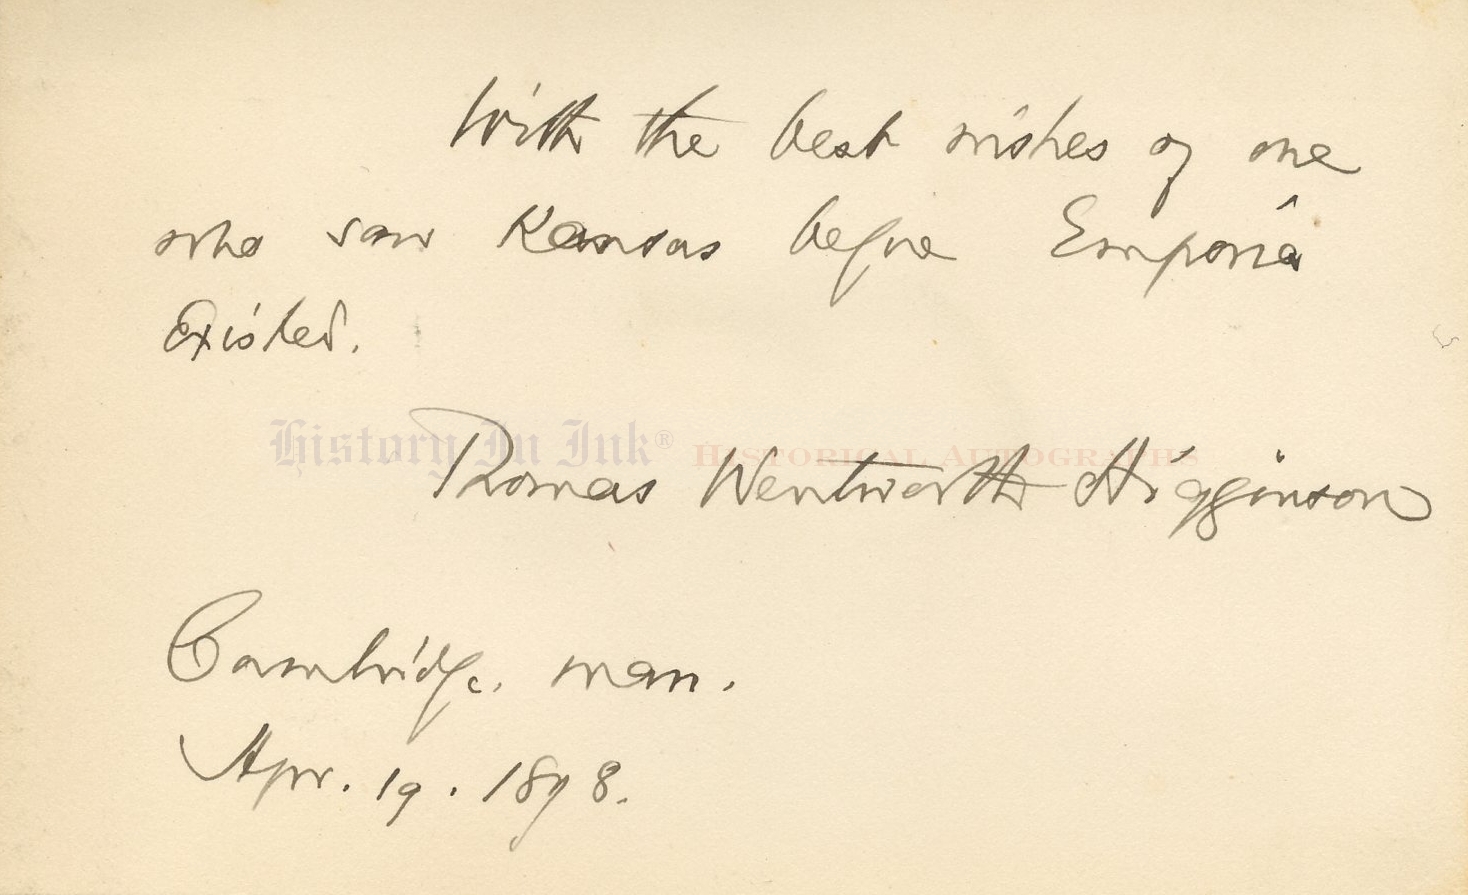 With the best wishes of one
who saw Kansas before Emporia
existed.
History In Ink® Historical Autographs
Thomas Wentworth Higginson
Cambridge, Mass.
Apr. 19. 1898.